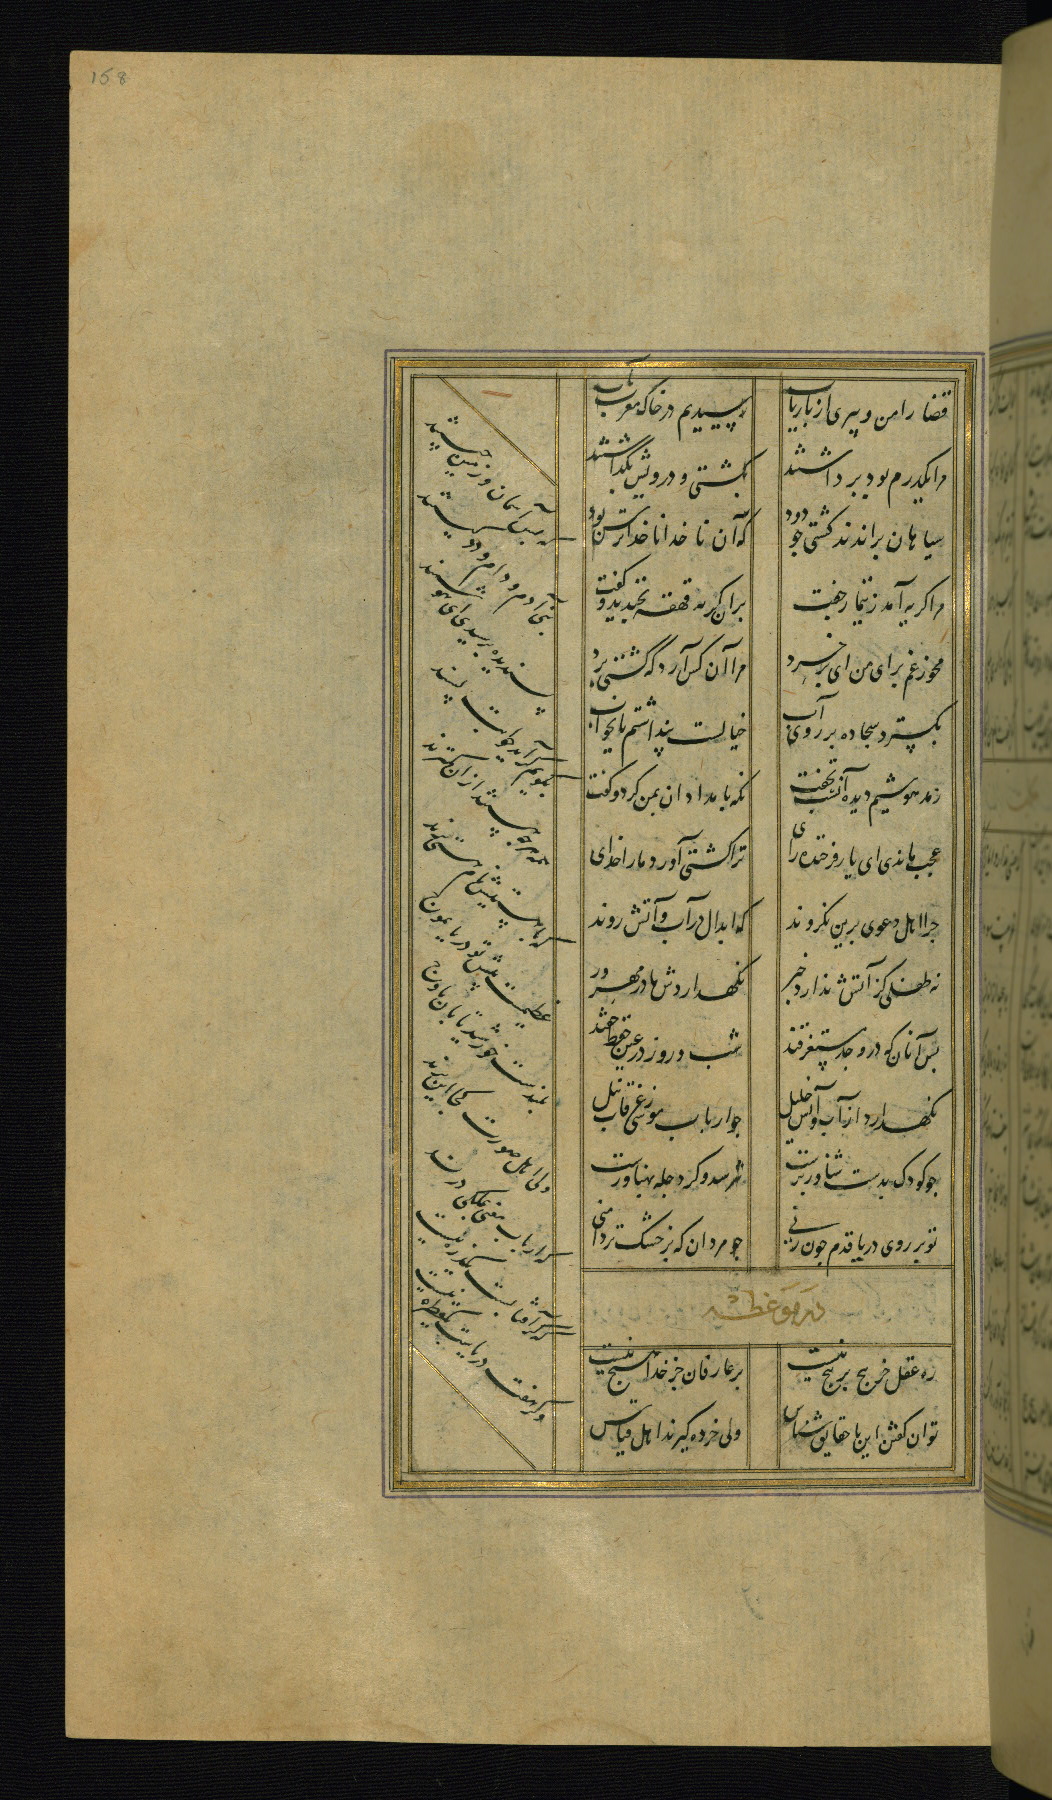 158
قضا را من و پیری از باریاب
رسیدیم در خاک مغرب بآب
مرا یکدرم بود برداشتند
بکشتی و درویش بگذاشتند
سیاهان براندند کشتی جو دود
که آن ناخدا ناخدا ترس بود
مرا کریه آمد ز تیمار جفت
بران کریه قهقه بخندید و کفت
مخور غم برای من ای پر خرد
مرا آن کس آرد که کشتی برد
بکسترد سجاده بر روی آب
خیالست پنداشتم یا بخواب
ز مدهوشیم دیده آنشب نخفت
نکه بامدادان بمن کرد و کفت
عجب ماندی ای یار فرخنده رای
ترا کشتی آورد و ما را خدای
جرا اهل دعوی برین نکروند
که ابدال در آب و آتش روند
نه طفلی کز آتش ندارد خبر
نکهداردش مادر مهرور
پس آنان که در وجد مستغرقند
شب و روز در عین حفظ حقند
نکهدارد از آب و آتش خلیل
جو ارباب موسی ز غرقاب نیل
جو کودک بدست شناور برست
نترسد وکر دجله پهناورست
تو بر روی دریا قدم جون زنی
جو مردان که بر خشک تردامنی
در موعظه
ره عقل جز پیچ بر پیچ نیست
بر عارفان جز خدا هیچ نیست
توان کفتن این با حقایق شناس
ولی خرده کیرند اهل قیاس
که پس آسمان و زمین چیستند
بنی آدم و دام و دد کیستند
پسندیده پرسیدی ای هوشمند
بکویم کر آید جوابت پسند
همه هرچه هستند از آن کمترند
که با هستیش نام هستی برند
عظیمست پیش تو دریا بموج
بلندست خورشید تابان باوج
ولی اهل صورت کجا پی برند
که ارباب معنی بملکی درند
که کر آفتابست یک ذره نیست
وکر هفت دریاست یک قطره نیست